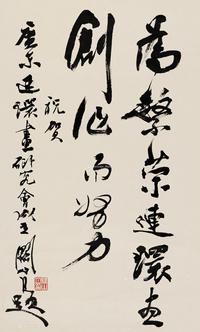 為繁荣連環画
創作而努力
祝贺
廣东連環畫研究會成立
關山月題